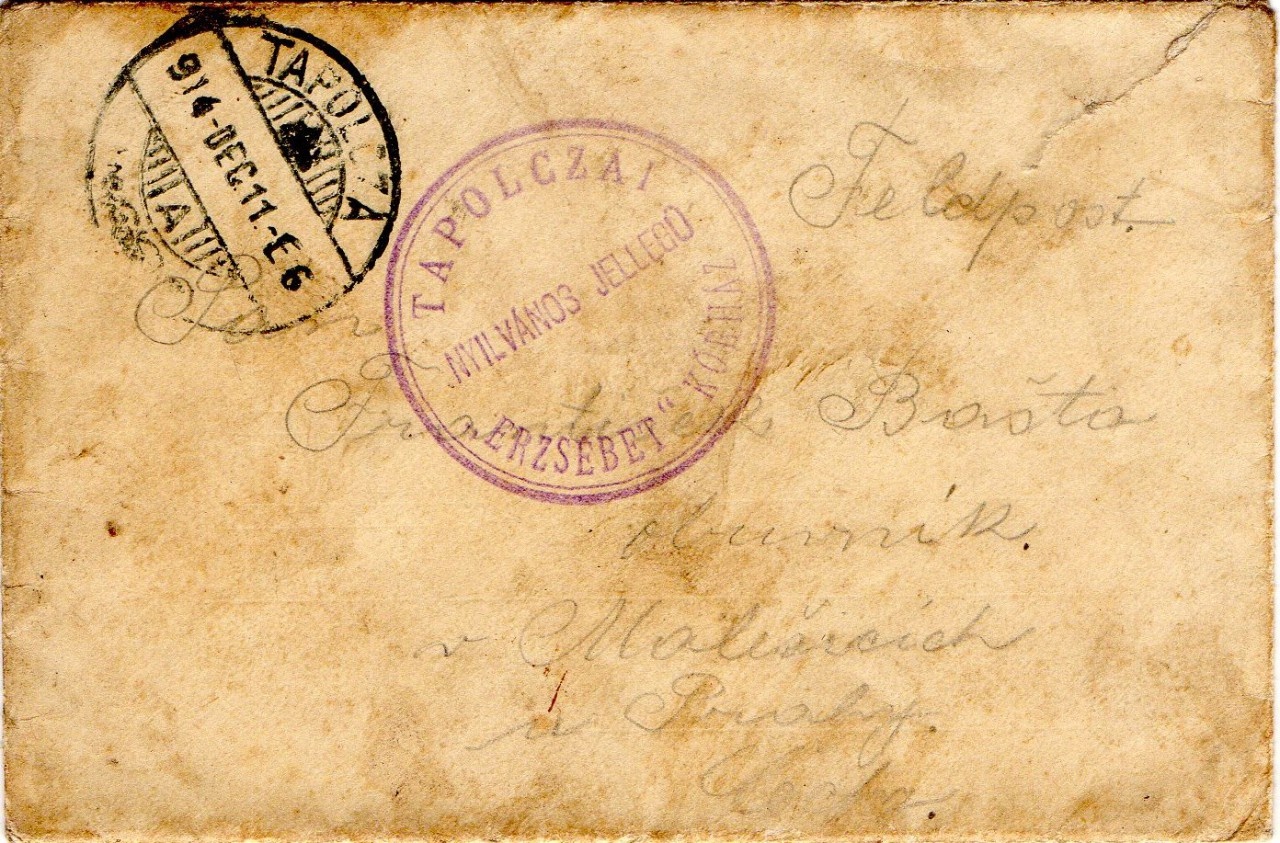 TAPOLCZA
914-DEC 11-E6
A
TAPOLCZAI
NYILVÁNOS JELLEGŰ
„ERZSÉBET“ KÓRHÁZ
Feldpost.
Pan
František Bašta
v Malešicích
u Prahy.